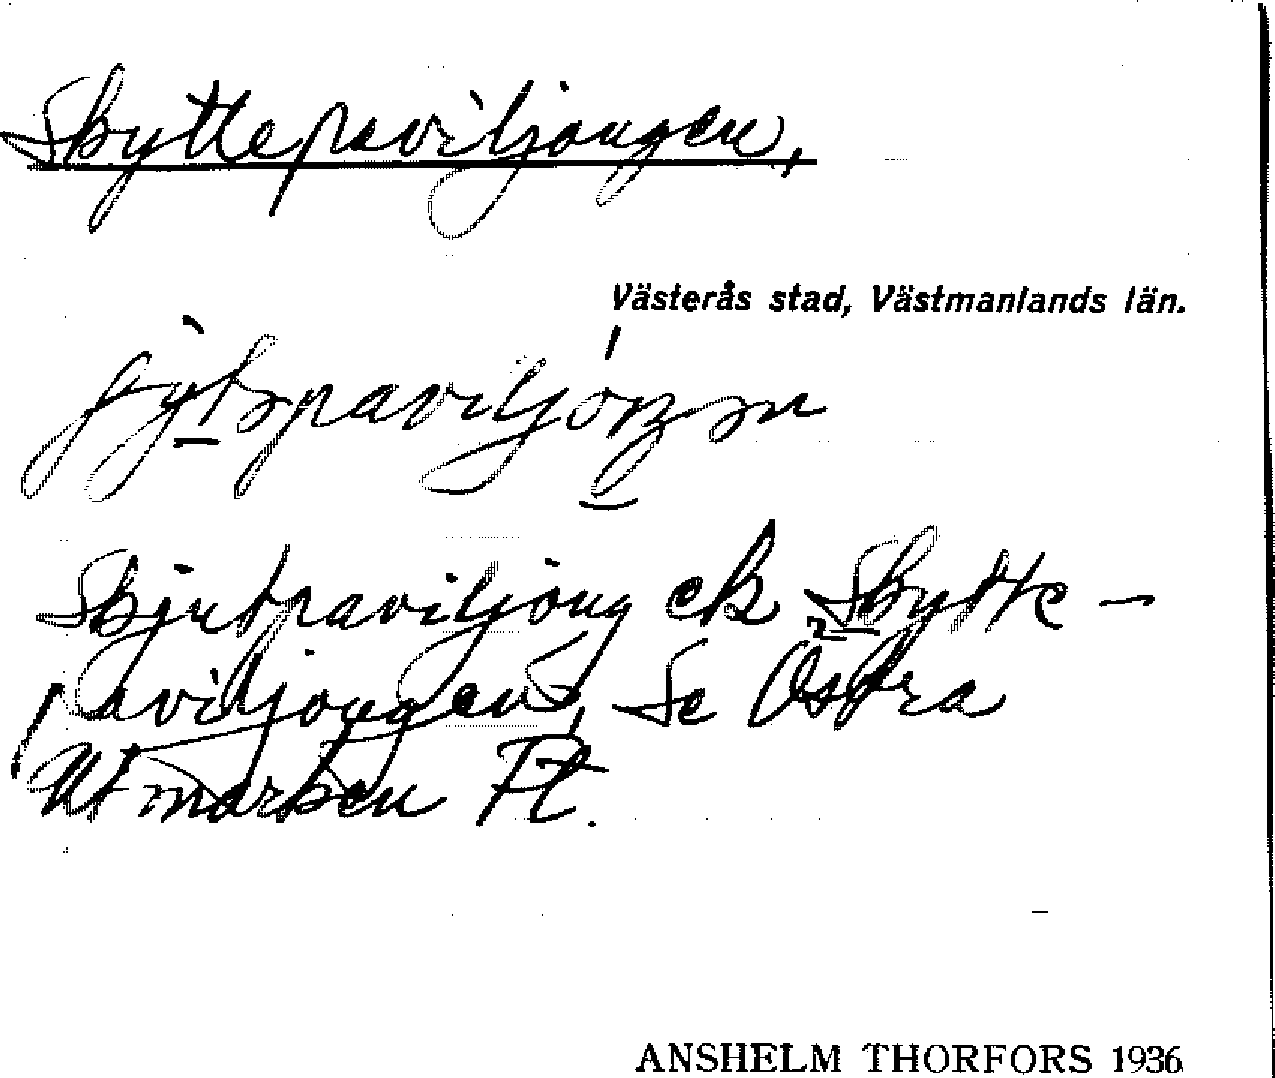 Skyttepaviljongen,
Västerås stad, Västmanlands län.
Skjutpaviljong ek Skytte-
paviljongen, Se Östra
Utmarken Ft.
ANSHELM THORFORS 1936